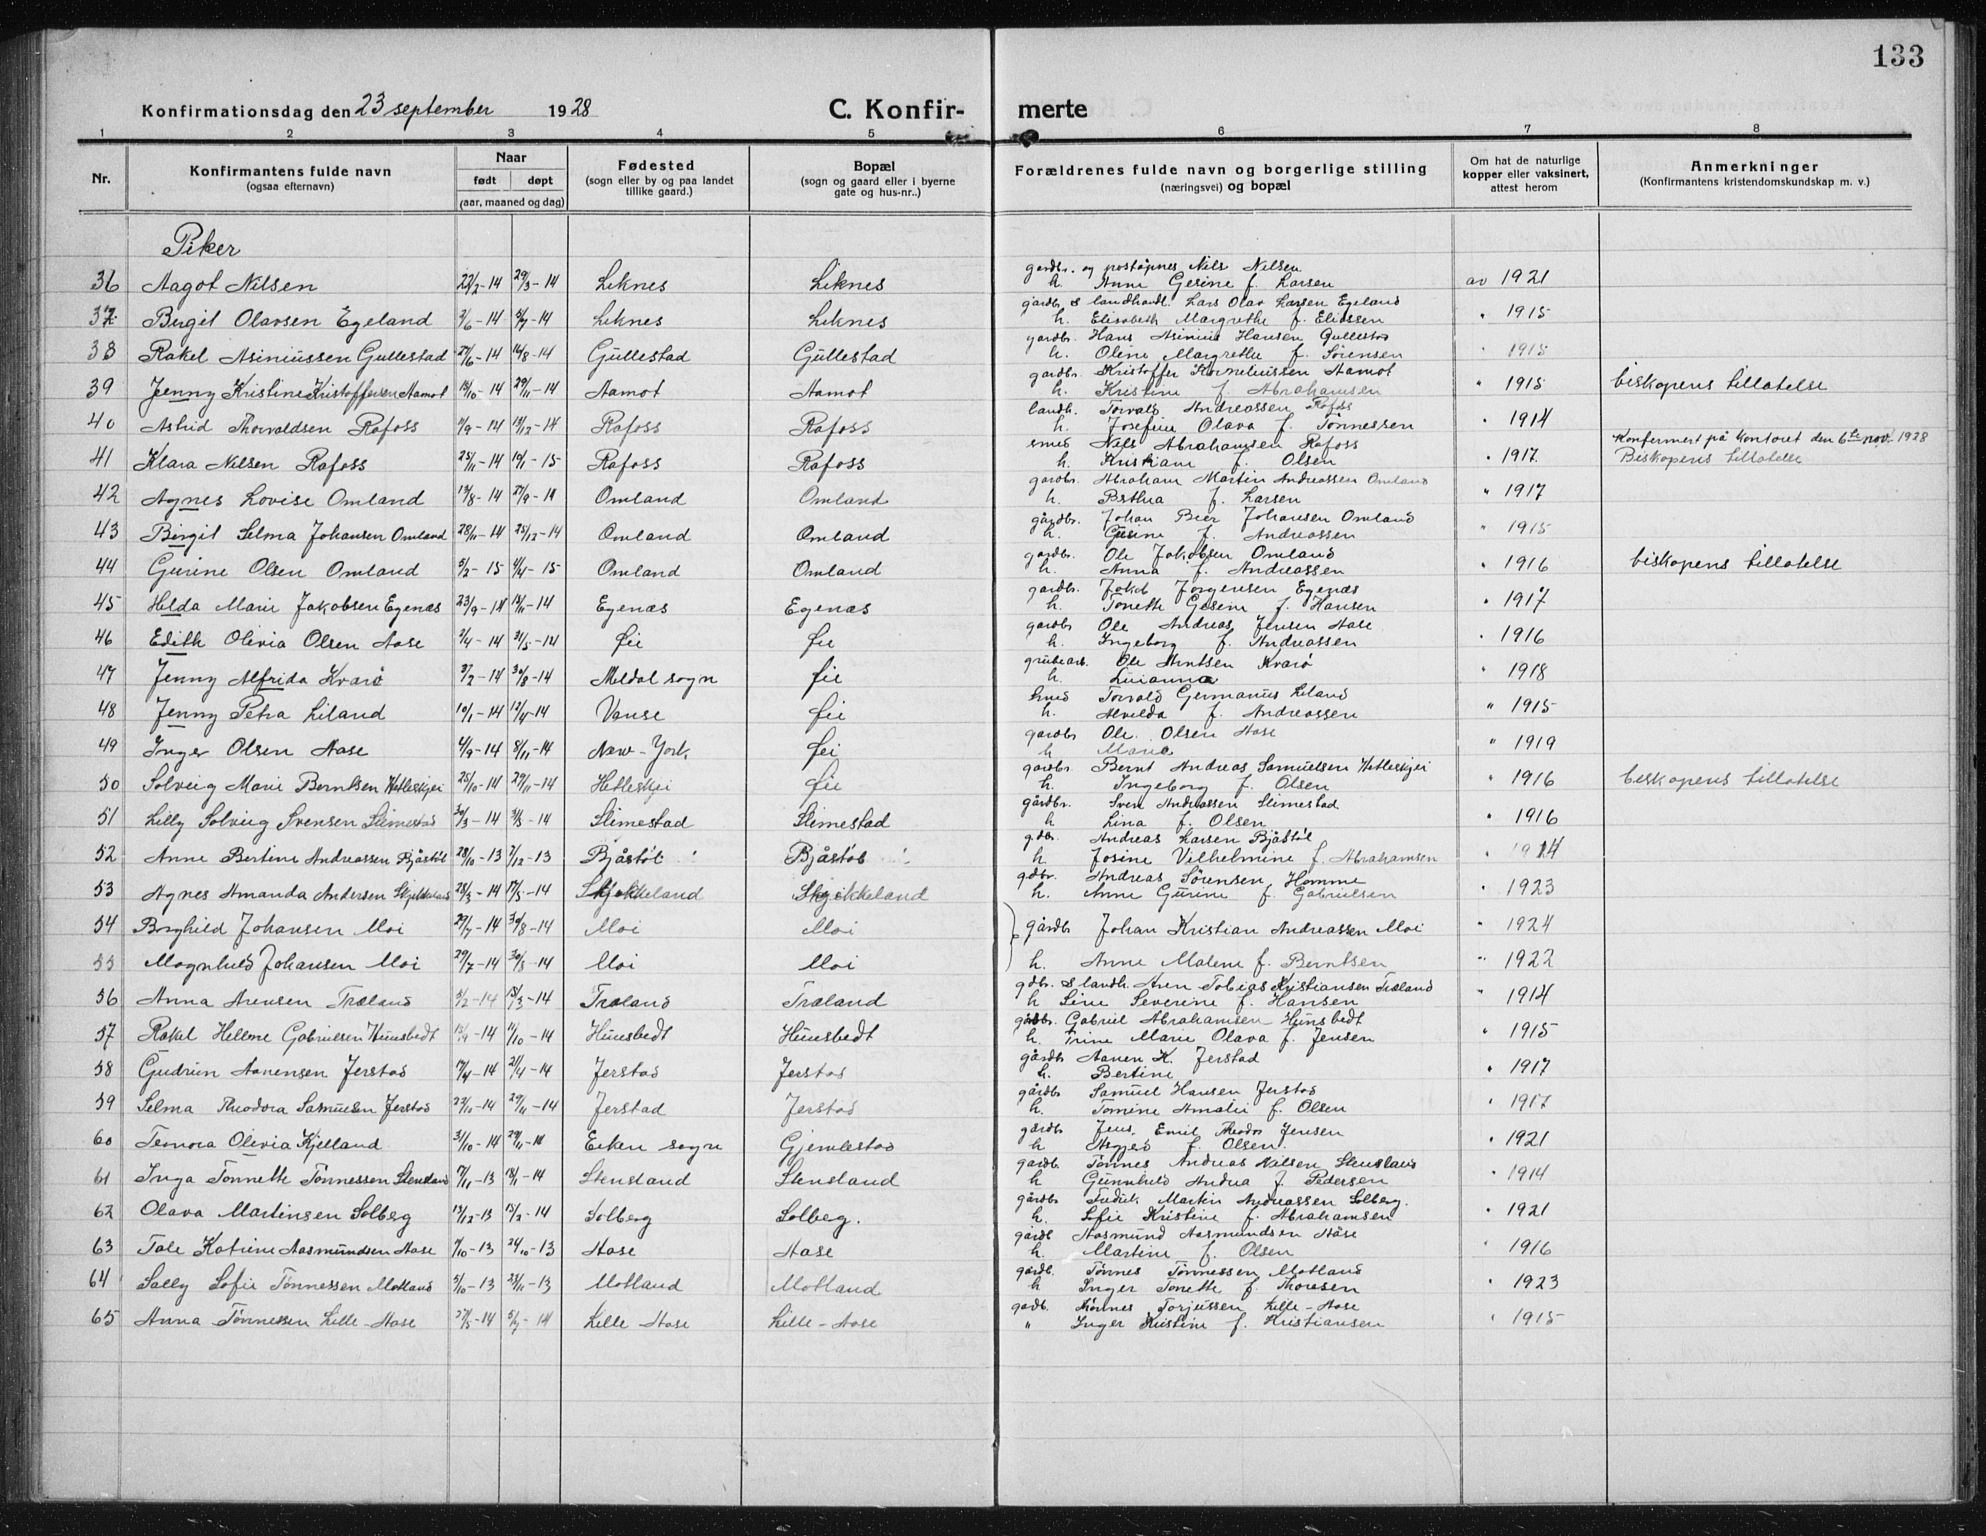 133
Konfirmationsdag den 23 september 1928 C. Konfir- merte
1 2 3 4 5 6 7 8
Nr. Konfirmantens fulde navn (ogsaa efternavn) Naar født døpt (aar, maaned og dag) Fødested (sogn eller by og paa landet tillike gaard.) Bopæl (sogn og gaard eller i byerne gate og hus-nr..) Forældrenes fulde navn og borgerlige stilling (næringsvei) og bopæl Om hat de naturlige kopper eller vaksinert, attest herom Anmerkninger (Konfirmantens kristendomskundskap m. v.)
Piker
36 Aagot Nilsen 22/2-14 29/3-14 Liknes Liknes gardbr. og poståpner Nils Nilsen h. Anne Gesine f. Larsen av 1921
37 Birgit Olavsen Egeland 3/6-14 5/7-14 Liknes Liknes gårdbr. & landhandl. Lars Olav Larsen Egeland h. Elisabeth Margrethe f. Eliassen " 1915
38 Rakel Asiniussen Gullestad 27/6-14 16/8-14 Gullestad Gullestad gardbr. Hans Asinius Hansen Gullestad h. Oline Margrethe f. Sørensen " 1915
39 Jenny Kristine Kristoffersen Aamot 18/10-14 29/11-14 Aamot Aamot gardbr. Kristoffer Korneliussen Aamot h. Kristine f. Abrahamsen " 1915 biskopens tillatelse
40 Astrid Thorvaldsen Rafoss 9/9-14 13/12-14 Rafoss Rafoss landh. Torvald Andreassen Rafoss h. Josefine Olava f. Tønnessen " 1914
41 Klara Nilsen Rafoss 25/11-14 10/1-15 Rafoss Rafoss smed Nils Abrahamsen Rafoss h. Kristiane f. Olsen " 1917. Konfermert på Kontoret den 6te nov. 1928 Biskopens tillatelse
42 Agnes Lovise Omland 13/8-14 27/9-14 Omland Omland gardbr. Abraham Martin Andreassen Omland h. Berthea f. Larsen " 1917
43 Birgit Selma Johansen Omland 28/11-14 25/12-14 Omland Omland gårdbr. Johan Beer Johansen Omland h. Gesine f. Andreassen " 1915
44 Gurine Olsen Omland 5/2-15 4/4-15 Omland Omland gardbr. Ole Jakobsen Omland h. Anna f. Andreassen " 1916 biskopens tillatelse
45 Helda Marie Jakobsen Egenæs 23/9-14 15/11-14 Egenæs Egenæs gardbr. Jakob Jørgensen Egenæs h. Tonette Gesine f. Hansen " 1917
46 Edith Olivia Olsen Aase 2/4-14 31/5-14 Øie Øie gardbr Ole Andreas Jensen Aase h. Ingeborg f. Andreassen " 1916
47 Jenny Alfrida Kvarø 3/2-14 30/8-14 Meldal sogn Øie grubearb. Ole Arntsen Kvarø h. Luianna " 1918
48 Jenny Petra Liland 10/1-14 12/4-14 Vanse Øie smed Torvald Germanus Liland h. Alvilda f. Andreassen " 1915
49 Inger Olsen Aase 4/9-14 8/11-14 New-York, Øie gardbr Ole Olsen Aase h Maria " 1919
50 Solveig Marie Berntsen Hetleskjei 25/10-14 29/11-14 Hetleskjei Øie gardbr. Bernt Andreas Samuelsen Hetleskjei h. Ingeborg f. Olsen " 1916 biskopens tillatelse
51 Lilly Solveig Svensen Slimestad 30/3-14 31/5-14 Slimestad Slimestad gårdbr. Sven Andreassen Slimestad h. Lina f. Olsen " 1916
52 Anne Bertine Andreassen Bjåstøl 28/10-13 7/12-13 Bjåstøl Bjåstøl gdbr. Andreas Larsen Bjåstøl h Josine Vilhelmine f. Abrahamsen " 1914
53 Agnes Amanda Andersen Skjekkeland 28/3-14 17/5-14 Skjekkeland Skjekkeland gdbr. Andreas Sørensen Homme h. Anne Gurine f. Gabrielsen " 1923
54 Borghild Johansen Moi 29/7-14 30/8-14 Moi Moi gårdbr Johan Kristian Andreassen Moi " 1924
55 Magnhild Johansen Moi 29/7-14 30/8-14 Moi Moi h. Anne Malene f. Berntsen " 1922
56 Anna Arensen Træland 3/2-14 15/3-14 Træland Træland gdbr. & landh. Aren Tobias Kristiansen Træland h Sine Severine f. Hansen " 1914
57 Rakel Helene Gabrielsen Hunsbedt 14 11/10-14 Hunsbedt Hunsbedt gårdbr. Gabriel Abrahamsen Hunsbedt h. Trine Marie Olava f. Jensen " 1915
58 Gudrun Aanensen Jerstad 14 21/4-14 Jerstad Jerstad gårdbr Aanen K. Jerstad h. Bertine " 1917
59 Selma Theodora Samuelsen Jerstad 23/10-14 29/11-14 Jerstad Jerstad gårdbr. Samuel Hansen Jerstad h. Tomine Amalie f. Olsen " 1917
60 Teonora Olivia Kjelland 31/10-14 29/11-14 Eiken sogn Gjemlestad gardbr. Jens Emil Theodor Jensen h Asgjerd f. Olsen. " 1921
61 Inga Tonnette Tønnessen Stensland 7/11-13 18/1-14 Stensland Stensland gardb. Tønnes Andreas Nilsen Stensland h Gunnhild Andrea f. Pedersen " 1914
62 Olava Martinsen Solberg 13/12-13 15/2-14 Solberg Solberg. gårdbr Fredrik Martin Andreassen Solberg. h. Sofie Kristine f. Abrahamsen " 1921
63 Tale Katrine Aasmundsen Aase 7/10-13 24/10-13 Aase Aase gårdb Aasmund Aasmundsen Aase h. Martine f. Olsen " 1916
64 Sally Sofie Tønnessen Motland 5/10-13 23/11-13 Motland Motland gårdb. Tønnes Tønnessen Motland h Inger Tonette f. Thoresen " 1923
65 Anna Tønnessen Lille-Aase 27/5-14 5/7-14 Lille Aase Lille-Aase gadb. Tønnes Torjussen Lille-Aase " Inger Kristine f. Kristiansen " 1915